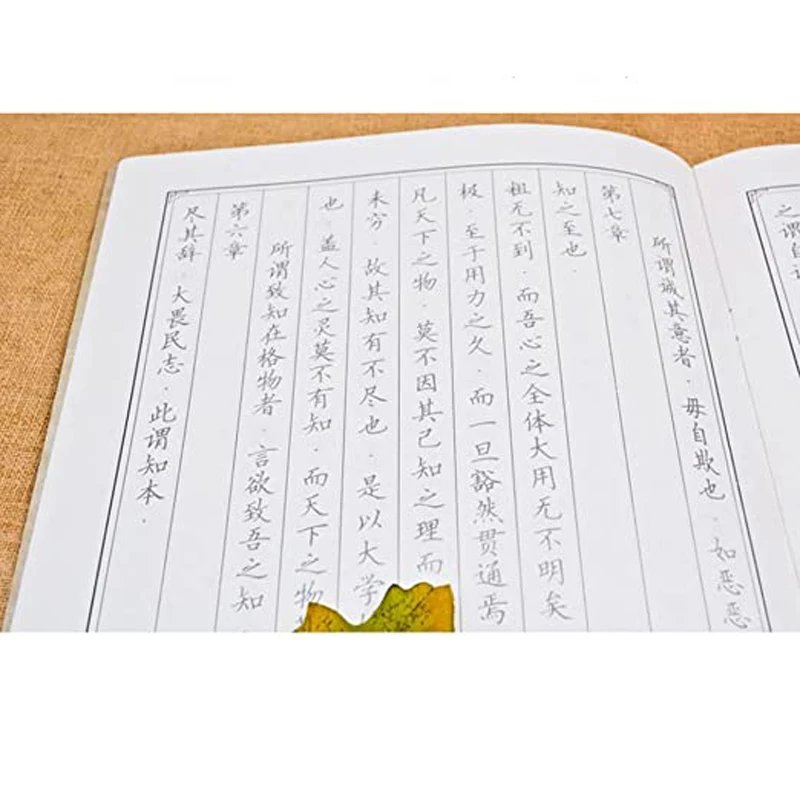 尽其辞.大畏民志.此谓知本.
第六章
所谓致知在格物者.言欲致吾之知
也.盖人心之灵莫不有知.而天下之物
未穷.故其知有不尽也.是以大学
凡天下之物.莫不因其已知之理而
极.至于用力之久.而一旦豁然贯通焉
粗无不到.而吾心之全体大用无不明矣
知之至也.
第七章
所谓诚其意者.毋自欺也.如恶恶
之谓自